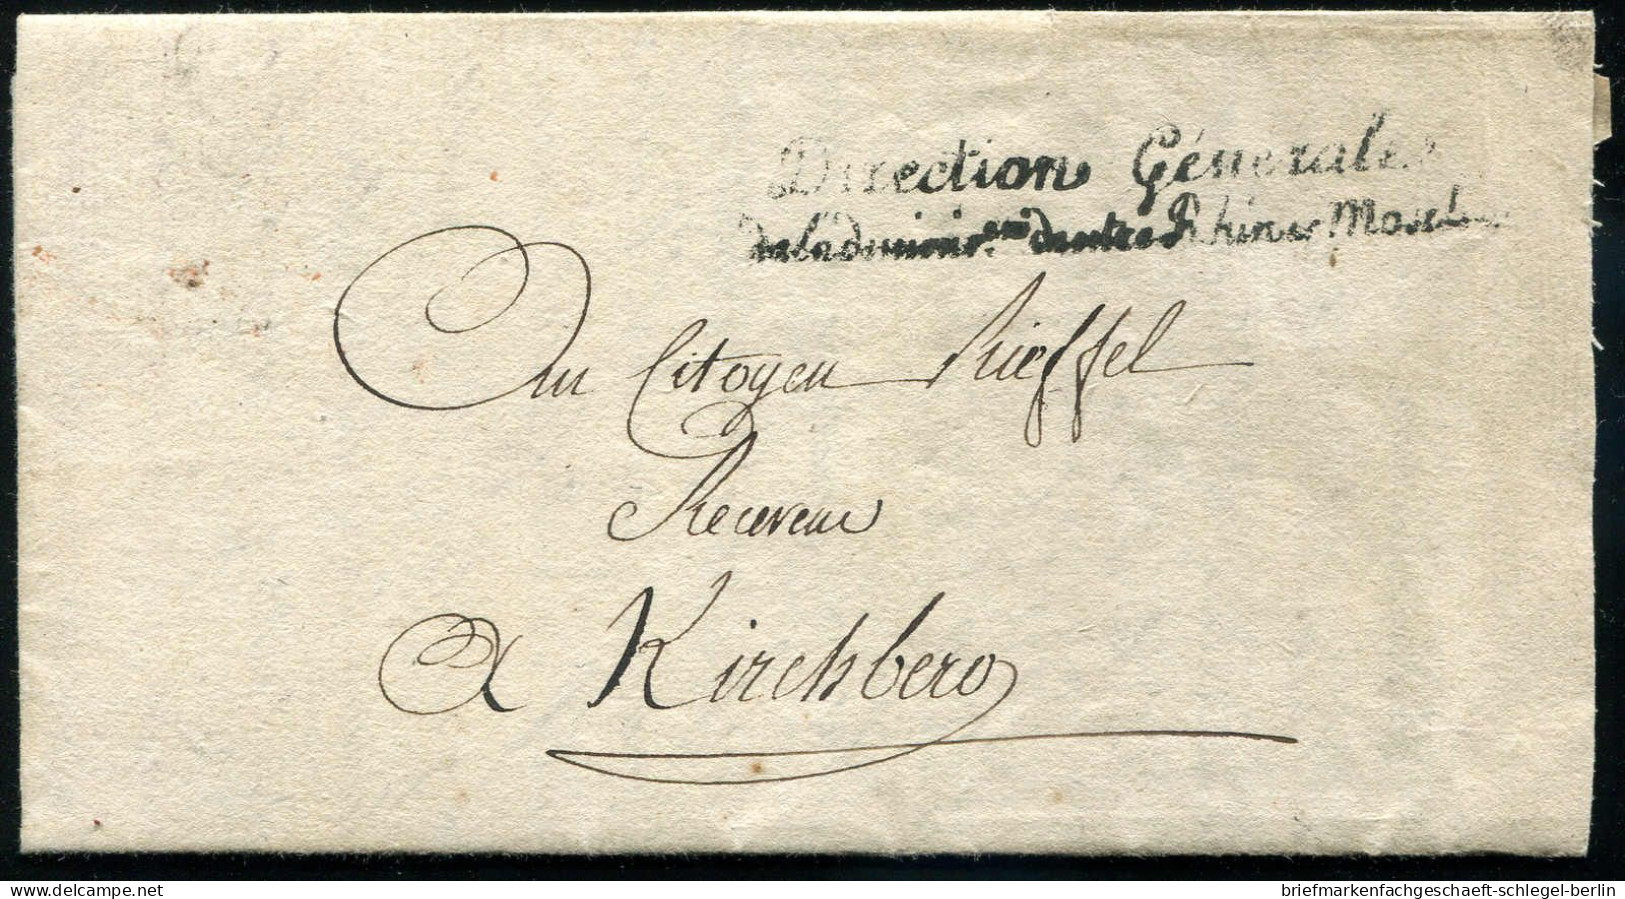 Direction Générale
de l'adminis.on d'entre Rhin et Moselle
Au Citoyen Rieffel
Receveur
A Kirchberg
delcampe.net
briefmarkenfachgeschaeft-schlegel-berlin